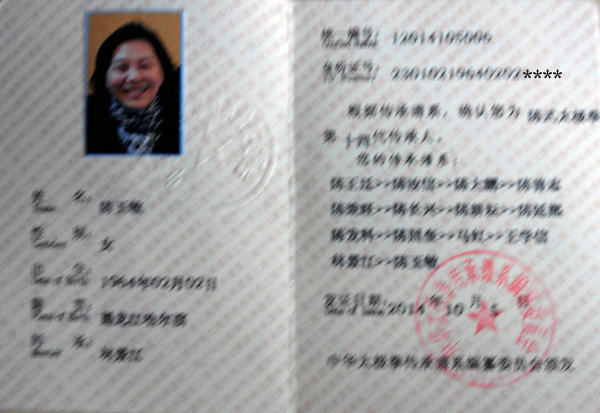 姓 名：陈玉敏
性 别：女
Date of Birth 1964年02月02日
黑龙江哈尔滨
林景江
统一编号：12014105006
身份证号：23010219640202****
根据传承谱系，确认您为 陈式太极拳
第 十四代传承人。
您的传承谱系：
陈王廷>>陈汝信>>陈大鹏>>陈善志
陈秉旺>>陈长兴>>陈耕耘>>陈延熙
陈发科>>陈照奎>>马虹>>王学信
林景江>>陈玉敏
发证日期：2014 年 10 月 5
中华太极拳传承谱系编纂委员会颁发